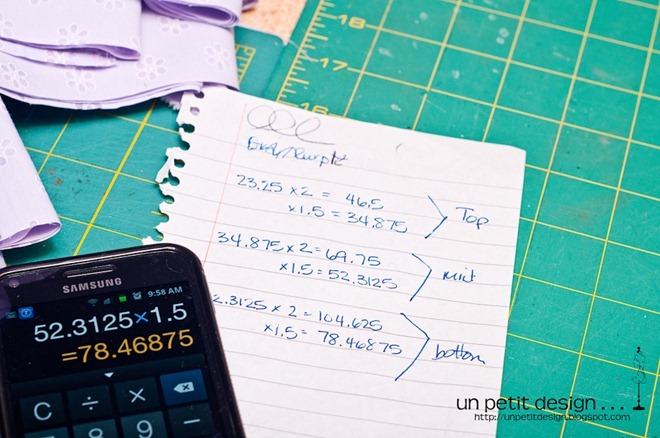 18
17
16
23.25 x 2 = 46.5
x1.5 = 34.875
Top
34.875 x 2 = 69.75
x1.5 = 52.3125
mid
2.3125 x 2 = 104.625
x1.5 = 78.46875
bottom
SAMSUNG
9:58 AM
52.3125×1.5
=78.46875
C ÷ × 
8 9 −
un petit design . . .
http://unpetitdesign.blogspot.com